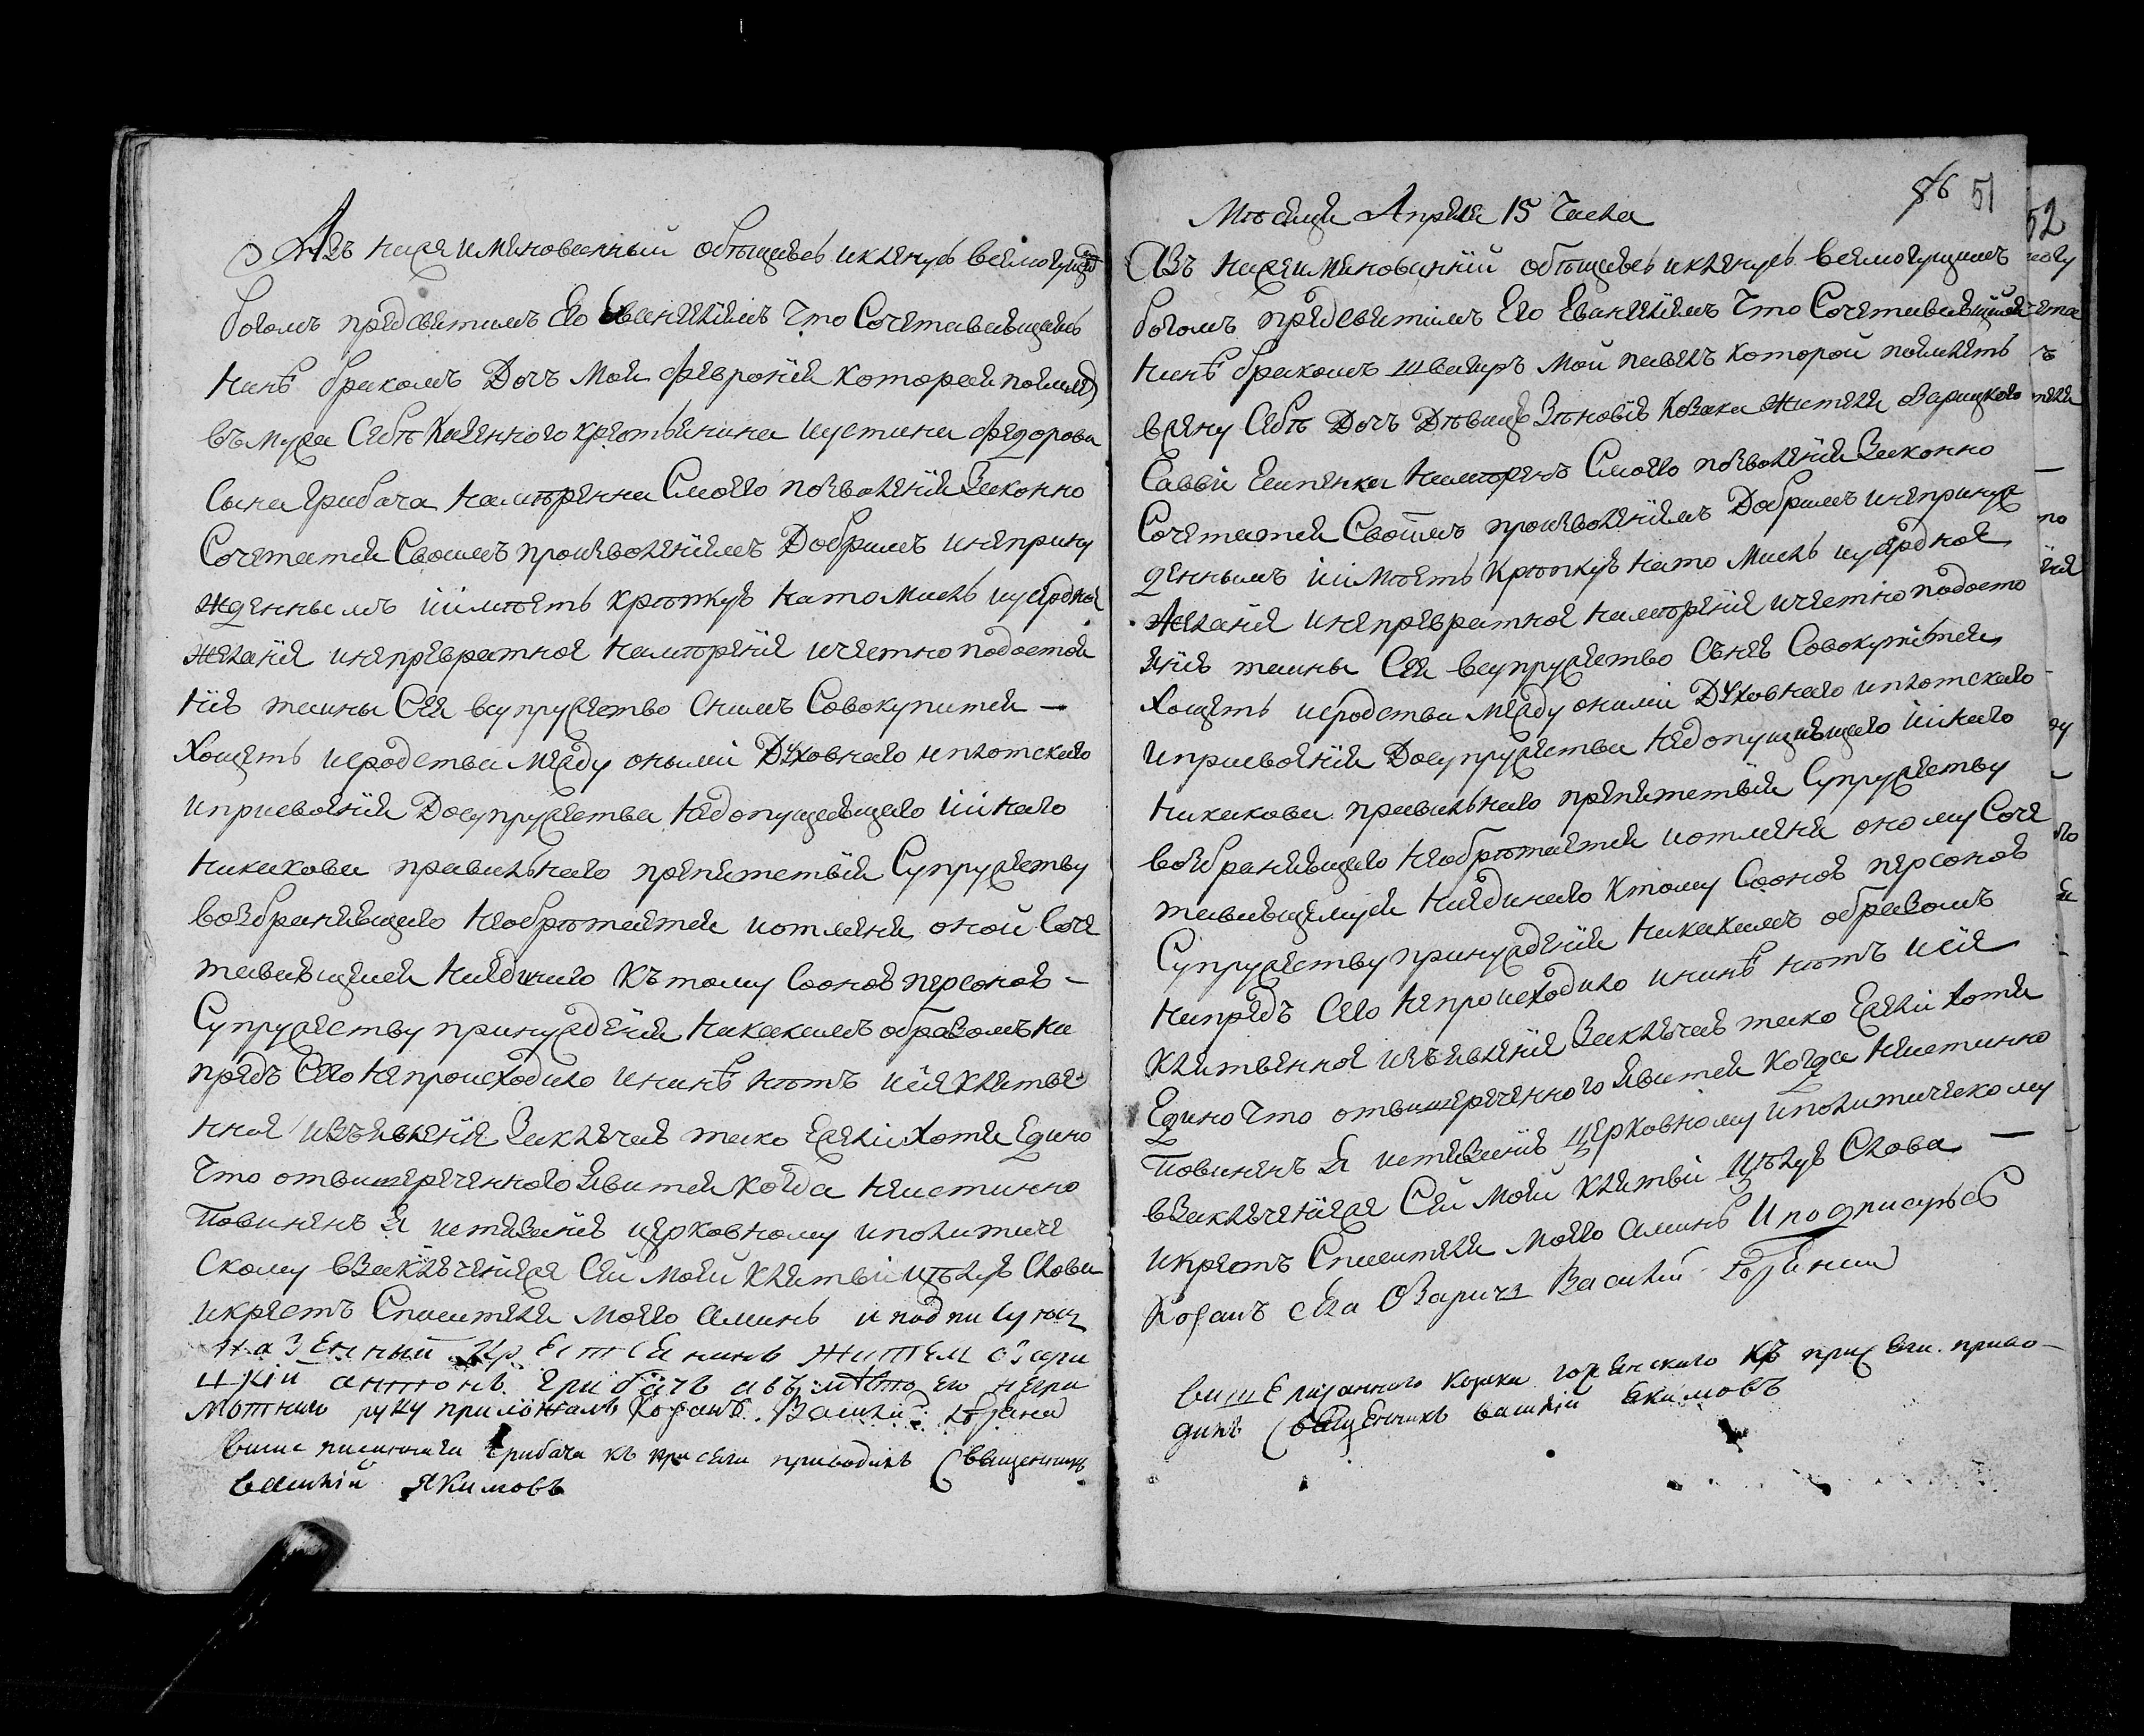 Азъ нижеименованный обѣщаюсь и клянусь всемогущимъ
богомъ предсвятимъ Его Евангелиемъ Что Сочетавающаясь
нинѣ бракомъ Дочъ моя Феврония которая поймаетъ
въ мужа Себѣ Казенного крестьянина иустина Федорова
Сына Грибача намѣренна Смоего позволения Законно
Сочетатся Своимъ произволениемъ Добримъ инеприну
жденнымъ иимѣетъ крѣпкую на то мисль иусердное
желание инепревратное намѣрение ичестно подостоя
нию таини Сея всупружество Снимъ Совокупится —
Хощетъ исродства между оными Духовнаго иплотскаго
иприсвоения Досупружества недопущающаго иинаго
никакова правильнаго препятствия Супружеству
возбраняющаго необрѣтается иотмене оной Соче
тавающейся ниединаго къ тому Сооною персоною —
Супружеству принуждения никакимъ образомъ на
предъ Сего непроисходило ининѣ нѣтъ исие клятве
нное изъявление Заключаю тако Ежели хотя Едино
Что отвишереченного Явится когда неистинно
Повиненъ Я истязанию церковному иполитиче
скому взаключение же Сей моей клятви цѣлую Слова
икрестъ Спасителя моего аминь и подписуюсь
казенный крестьянинъ житель озари
цкій антонъ Грибачъ авъмѣсто его негра
мотнаго руку приложилъ козакъ Василій
више писаннаги Грибача къ присяги приводилъ Священникъ
василій Якимовъ
56 51
Мѣсяца Апреля 15 Числа
Азъ нижеименованній обѣщаюсь иклянусь всемогущимъ
богомъ предсвятимъ Его Евангелиемъ Что Сочетавающійся
нинѣ бракомъ швагиръ мой павелъ которой поймаетъ
вжену Себѣ Дочъ Дѣвицю Зѣновию козака жителя озарицкого
Саввы намѣренъ Смоего позволения Законно
Сочетатся Своимъ произволениемъ Добримъ инепринуж
деннымъ иимѣетъ крѣпкую нато мисль иусердное
желание инепревратное намѣрение ичестно подосто
янию таины Сея всупружество Сънею Совокупится
Хощетъ исродства между оними Духовнаго иплотскаго
иприсвоения Досупружества недопущающаго иинаго
никакова правильнаго препятствия Супружеству
возбраняющаго необрѣтается иотмене оному Соче
тавающемуся ниединаго ктому Сооною персоною
Супружеству принуждения никакимъ образомъ
напредъ Сего непроисходило ининѣ нѣтъ исие
клятвенное изъявление Заключаю тако Ежели хотя
Едино Что отвишереченного Явится когда неистинно
Повиненъ Я истязанию церковному иполитическому
взаключение же Сей моей клятви цѣлую Слова —
икрестъ Спасителя моего аминь И подписуюсь
козакъ села Озаричъ Василій
вишеписанного козака къ присяги приво-
дилъ Священникъ василій Якимовъ
52